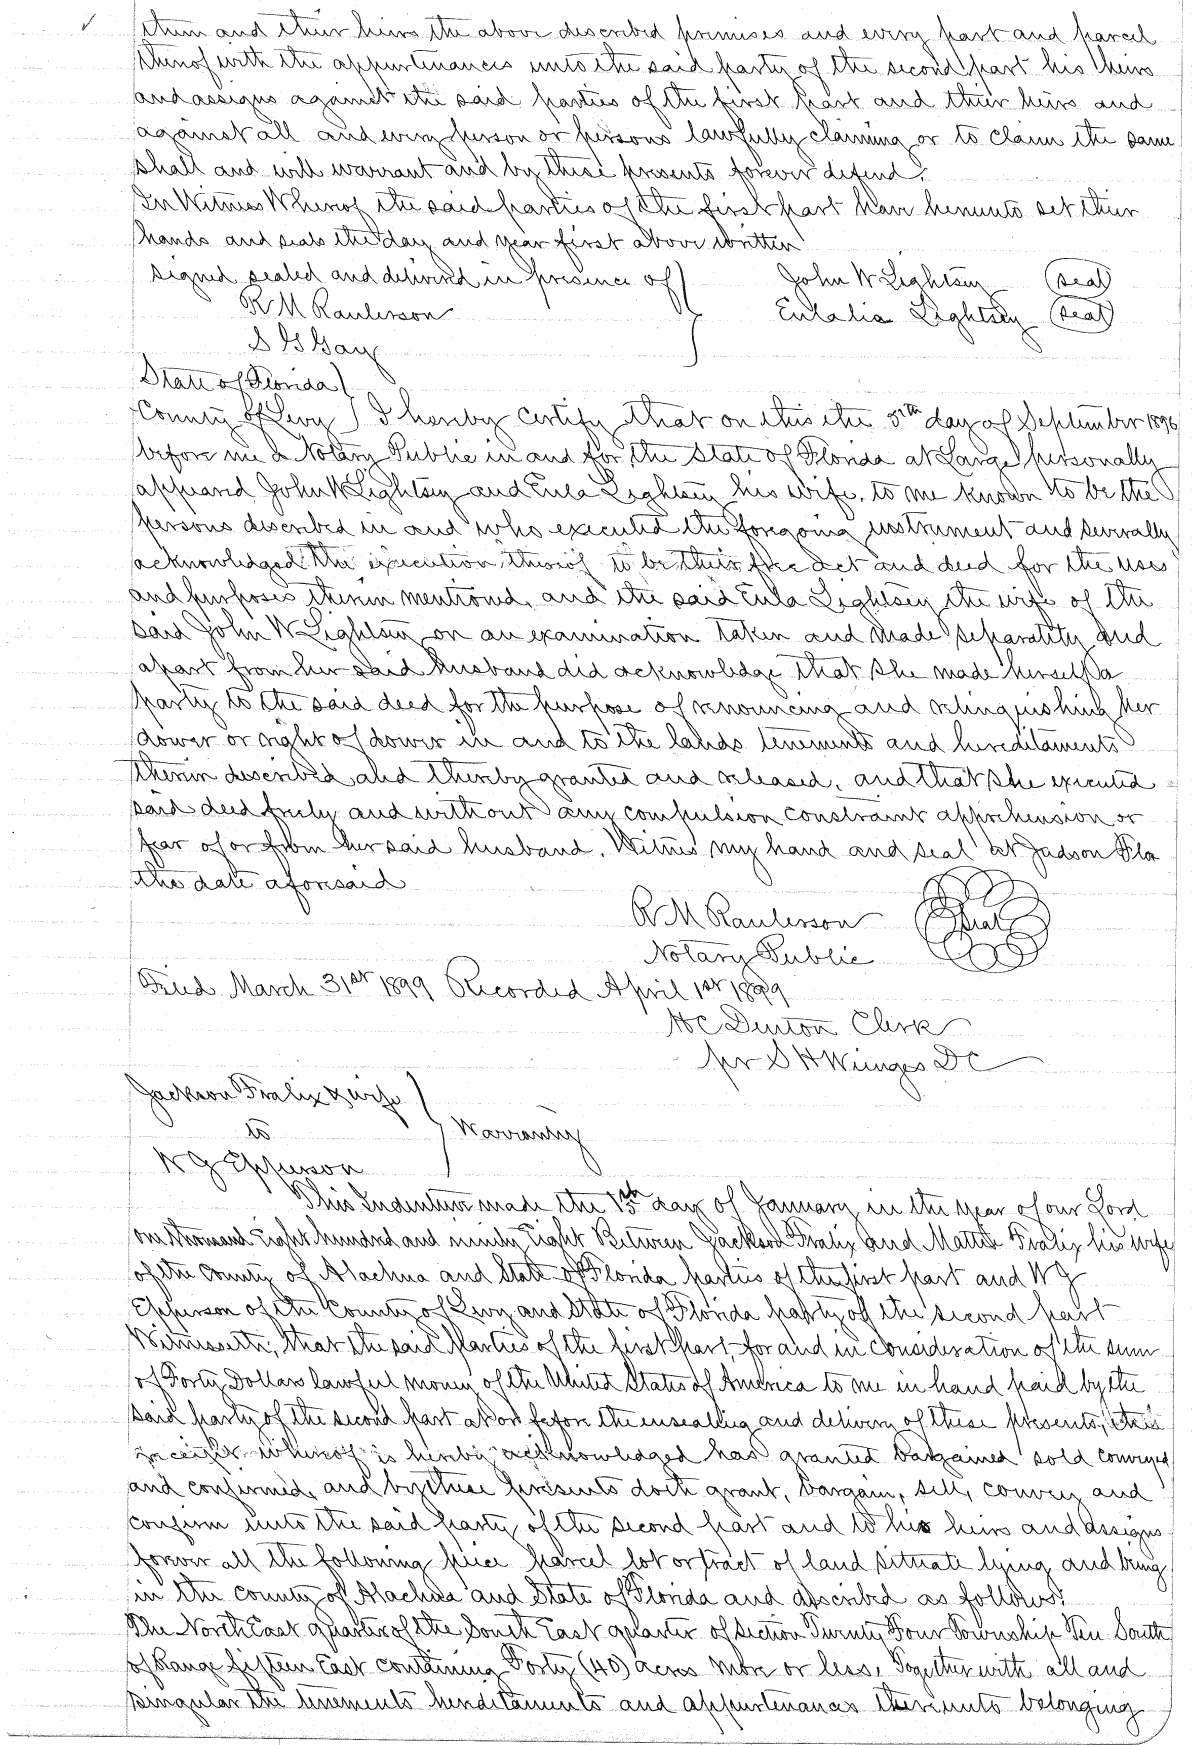 them and their heirs the above described premises and every part and parcel
thereof with the appurtenances unto the said party of the second part his heirs
and assigns against the said parties of the first part and their heirs and
against all and every person or persons lawfully claiming or to claim the same
shall and will warrant and by these presents forever defend.
In Witness Whereof the said parties of the first part have hereunto set their
hands and seals the day and year first above written
signed sealed and delivered in presence of } John W Lightsey (seal)
R M Raulerson Eulalia Lightsey (seal)
S G Gay
State of Florida }
County of Levy } I hereby certify that on this the 5th day of September 1896
before me a Notary Public in and for the State of Florida at Large personally
appeared John W Lightsey and Eula Lightsey his wife, to me known to be the
persons described in and who executed the foregoing instrument and severally
acknowledged the execution thereof to be their free act and deed for the uses
and purposes therein mentioned, and the said Eula Lightsey the wife of the
said John W Lightsey on an examination taken and made separately and
apart from her said husband did acknowledge that she made herself a
party to the said deed for the purpose of renouncing and relinquishing her
dower or right of dower in and to the lands tenements and hereditaments
therein described and thereby granted and released, and that she executed
said deed freely and without any compulsion constraint apprehension or
fear of or from her said husband. Witness my hand and seal at Judson Fla
the date aforesaid
R M Raulerson (seal)
Notary Public
Filed March 31st 1899 Recorded April 1st 1899
H C Denton Clerk
pr S H Wienges D C
Jackson Fralix & wife }
to } Warranty
W J Epperson
This Indenture made the 15th day of January in the year of our Lord
on thousand Eight hundred and ninety Eight Between Jackson Fralix and Mattie Fralix his wife
of the County of Alachua and State of Florida parties of the first part and W J
Epperson of the County of Levy and State of Florida party of the second part
Witnesseth, that the said Parties of the first part, for and in consideration of the sum
of Forty Dollars lawful money of the United States of America to me in hand paid by the
said party of the second part at or before the ensealing and delivery of these presents, the
receipt whereof is hereby acknowledged has granted bargained sold conveyed
and confirmed, and by these presents doth grant, bargain, sell, convey and
confirm unto the said party of the second part and to his heirs and assigns
forever all the following piece parcel lot or tract of land situate lying and being
in the county of Alachua and State of Florida and described as follows:
The North East quarter of the South East quarter of Section Twenty Four Township Ten South
of Range fifteen East containing Forty (40) acres more or less, Together with all and
singular the tenements hereditaments and appurtenances thereunto belonging